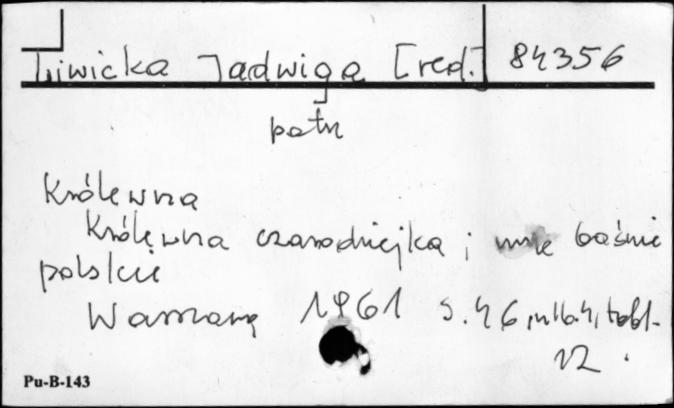 Liwicka Jadwiga [red.] 84356
patrz
Królewna
Królewna czarodziejka i inne baśnie
polskie
Warszawa 1961 s. 46, nlb. 4, tabl.
12.
Pu-B-143